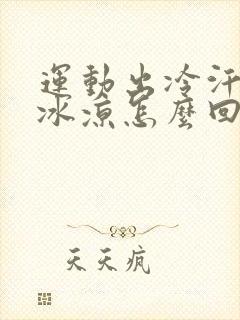 運動出冷汗
冰涼怎麼回
天天疯